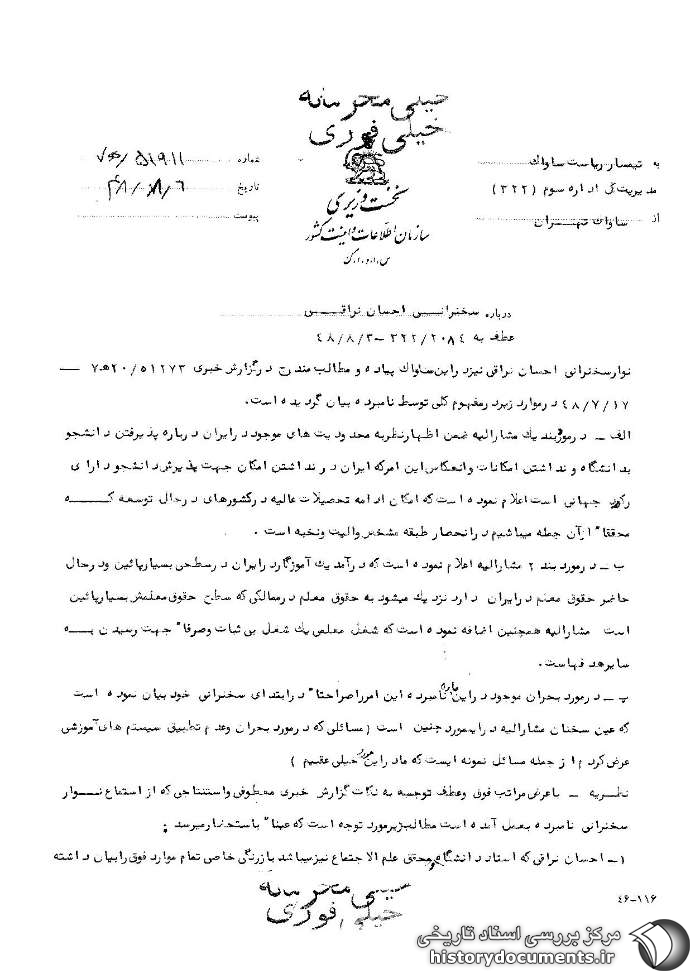 خیلی محرمانه
خیلی فوری
نخست وزیری
سازمان اطلاعات و امنیت کشور
س.ا.و.ا.ک
به تیمسار ریاست ساواک
مدیریت کل اداره سوم (۳۲۲)
از ساواک تهران
شماره
تاریخ ۴۸/۸/۶
پیوست
درباره سخنرانی احسان نراقی
عطف به ۳۲۲/۲۰۸۴ – ۴۸/۸/۳
نوار سخنرانی احسان نراقی نیز در این ساواک پیاده و مطالب مندرج در گزارش خبری ۲۰/۵۱۲۷۳ه‍۷ —
۴۸/۷/۱۷ در موارد زیر در مفهوم کلی توسط نامبرده بیان گردیده است.
الف – در مورد بند یک مشارالیه ضمن اظهار نظر به محدودیت های موجود در ایران درباره پذیرفتن دانشجو
بدانشگاه و نداشتن امکانات وانعکاس این امر که ایران در نداشتن امکان جهت پذیرش دانشجو دارای
رکود جهانی است اعلام نموده است که امکان ادامه تحصیلات عالیه در کشورهای در حال توسعه که
محققا" از آن جمله میباشیم در انحصار طبقه مشخص والیت ونخبه است .
ب – در مورد بند ۲ مشارالیه اعلام نموده است که درآمد یک آموزگار در ایران در سطحی بسیار پائین ودر حال
حاضر حقوق معلم در ایران دارد نزدیک میشود به حقوق معلم در ممالکی که سطح حقوق معلمش بسیار پائین
است مشارالیه همچنین اضافه نموده است که شغل معلمی یک شغل بی ثبات وصرفا" جهت رسیدن به
سایر هدفهاست.
پ – در مورد بحران موجود در این باره نامبرده این امر را صراحتا" در ابتدای سخنرانی خود بیان نموده است
که عین سخنان مشارالیه در اینمورد چنین است (مسائلی که در مورد بحران وعدم تطبیق سیستم های آموزشی
عرض کردم از جمله مسائل نمونه ایست که ما در این مورد خیلی عقبیم )
نظریه – با عرض مراتب فوق وعطف توجه به نکات گزارش خبری معطوفی واستنتاجی که از استماع نوار
سخنرانی نامبرده بعمل آمده است مطالب زیر مورد توجه است که عینا" باستحضار میرسد :
۱– احسان نراقی که استاد دانشگاه و محقق علم الاجتماع نیز میباشد با زرنگی خاصی تمام موارد فوق را بیان داشته
خیلی محرمانه
خیلی فوری
۴۶-۱۱۶
مرکز بررسی اسناد تاریخی
historydocuments.ir